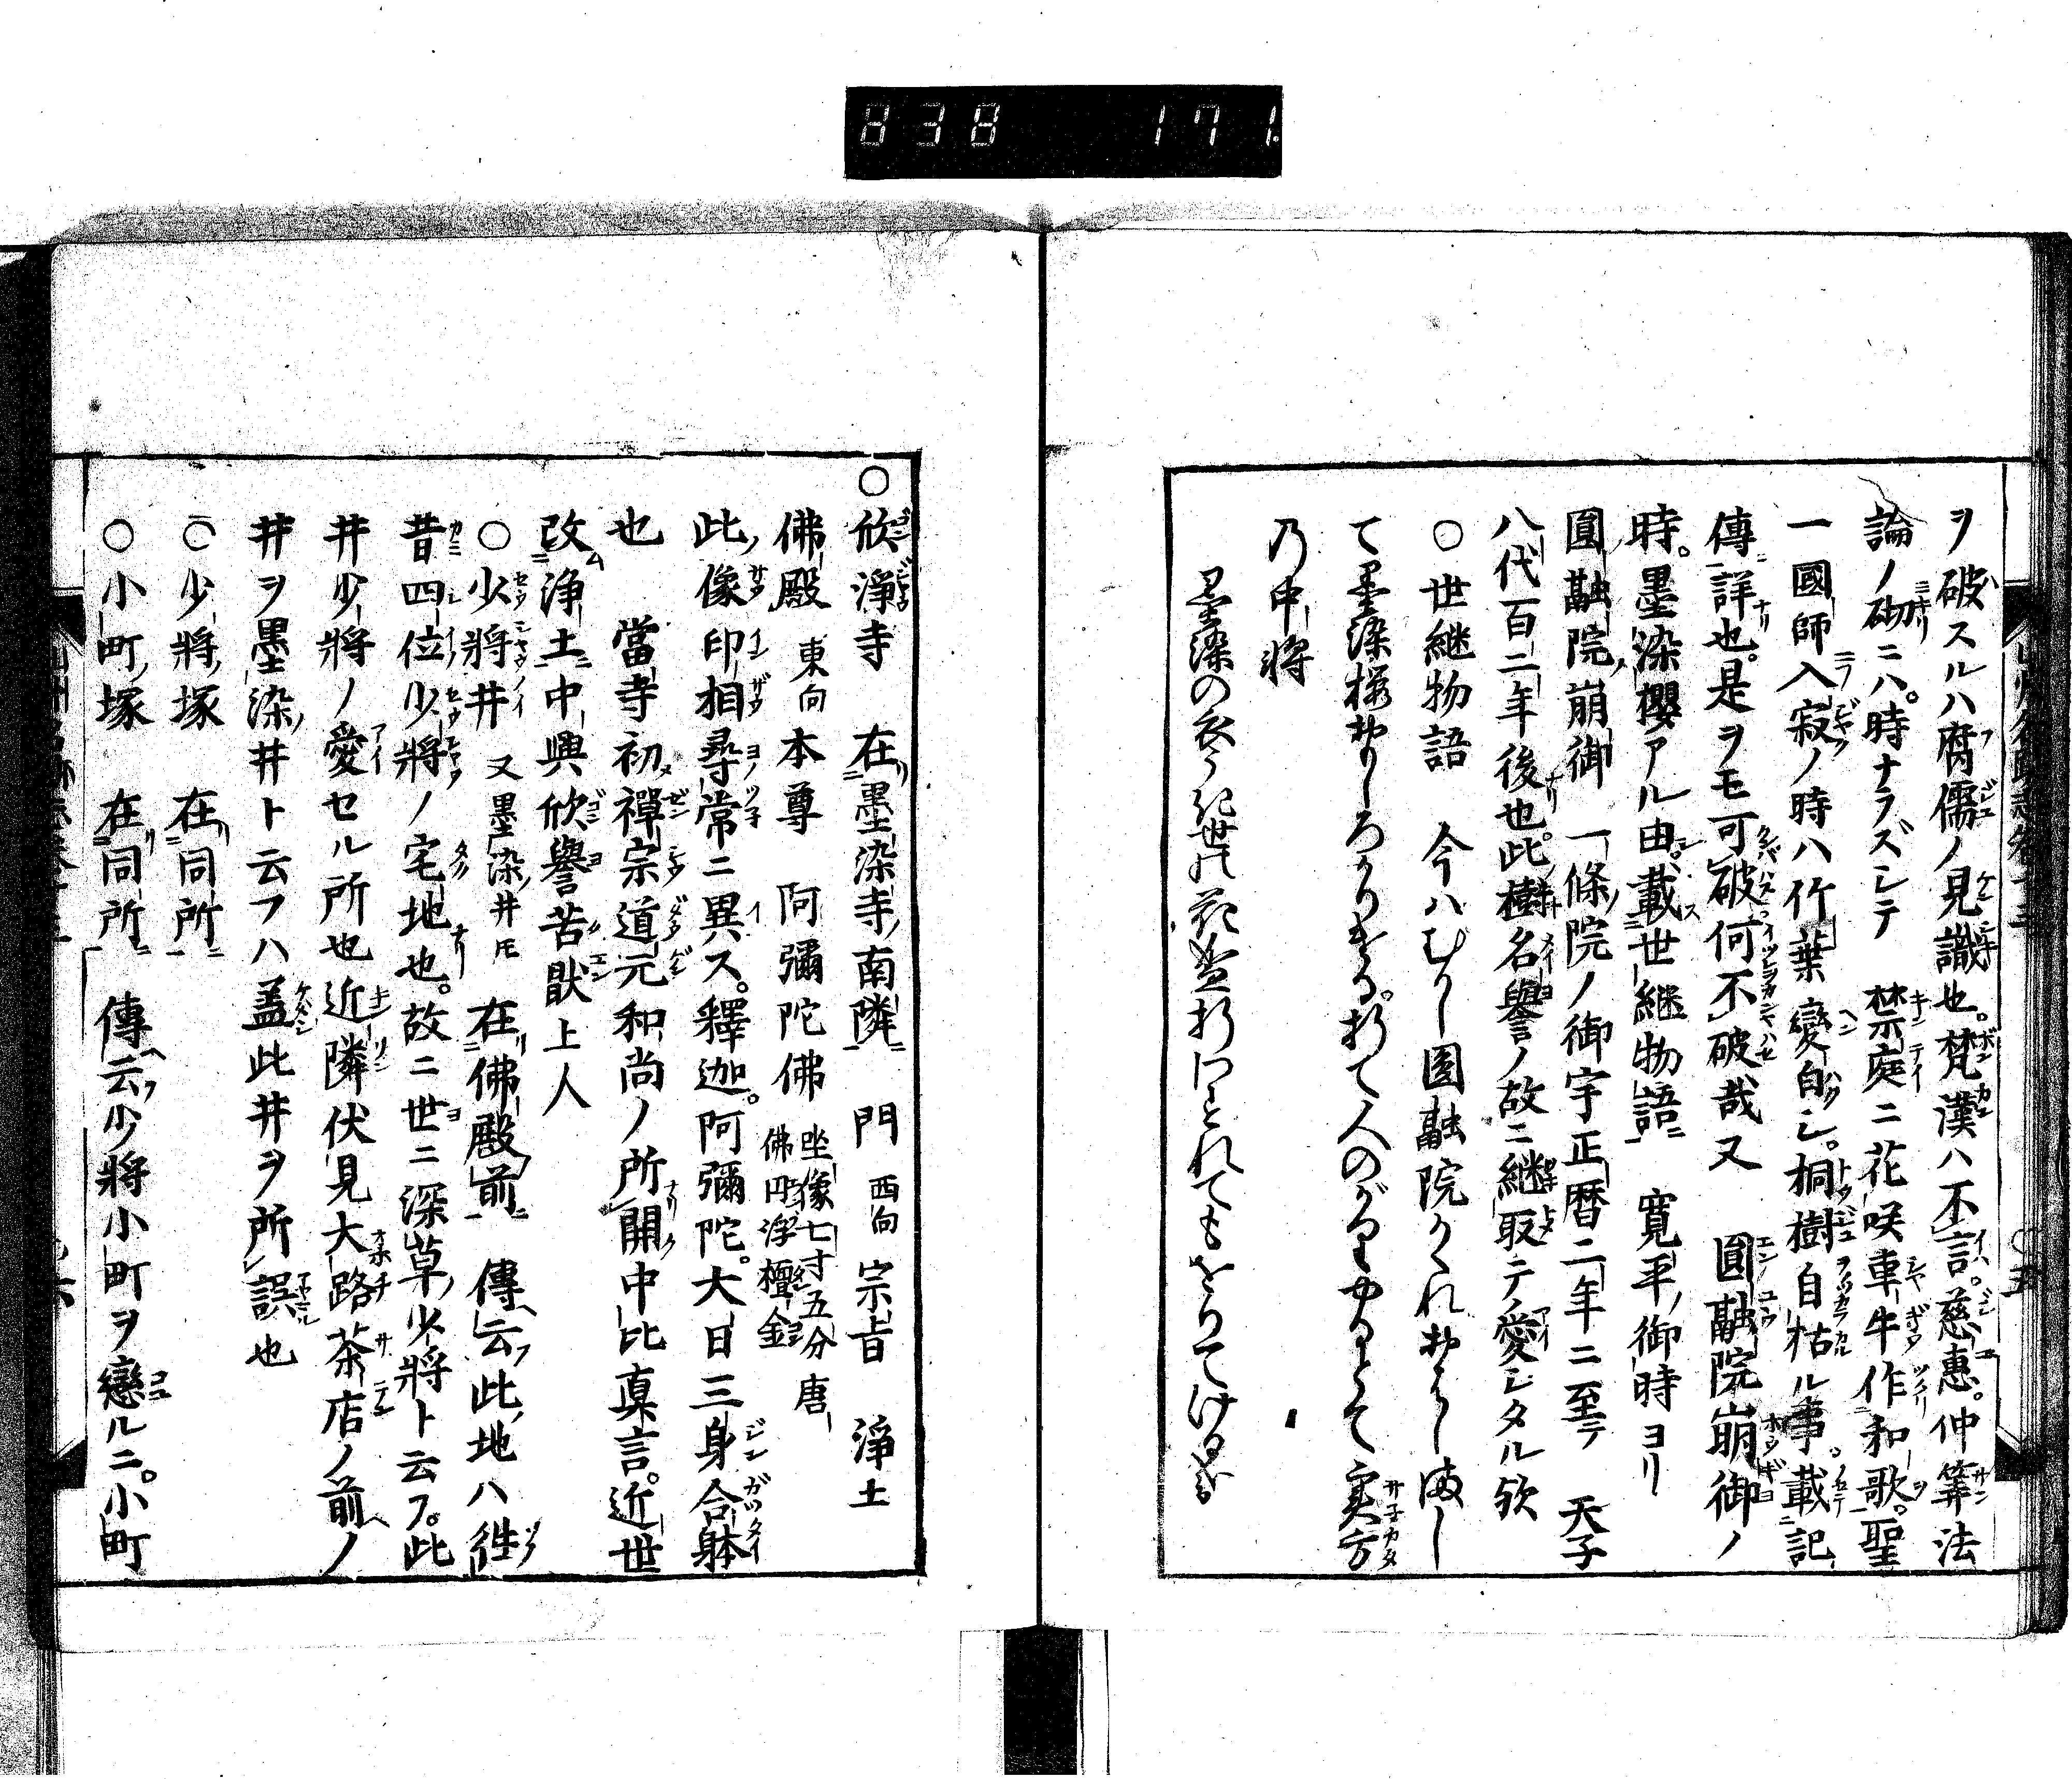 838 171
ヲ破スルハ腐儒ノ見識也。梵漢ハ不言。慈恵。仲算法
論ノ砌ニハ。時ナラズシテ 禁庭ニ花咲車牛作和歌。聖
一國師入寂ノ時ハ竹葉變白シ。桐樹自枯ル事。載記
傳詳也。是ヲモ可破何不破哉又 圓融院崩御ノ
時。墨染櫻アル由。載世継物語 寛平ノ御時ヨリ
圓融院崩御 一條院ノ御宇正暦二年ニ至テ 天子
八代百二年後也。此樹名譽ノ故ニ継取テ愛シタル欤
○世継物語 今ハむかし圓融院かくれおはしまし
て墨染桜おもしろかりける。折て人のがりやるとて實方
乃中将
墨染の衣うき世の花盛折わすれてもをりてける哉
○欣淨寺 在墨染寺南隣 門西向 宗旨 淨土
佛殿 東向 本尊 阿彌陀佛 坐像七寸五分唐佛円浮檀金
此像印相尋常ニ異ス。釋迦。阿彌陀。大日三身合躰
也 當寺初禪宗道元和尚ノ所開中比真言。近世
改淨土中興欣譽苦猒上人
○少將井 又墨染井トモ 在佛殿前 傳云此地ハ徃
昔四位少將ノ宅地也。故ニ世ニ深草少將ト云フ。此
井少將ノ愛セル所也近隣伏見大路茶店ノ前ノ
井ヲ墨染井ト云フハ盖此井ヲ所誤也
○少將塚 在同所
○小町塚 在同所 傳云少將小町ヲ戀ルニ。小町